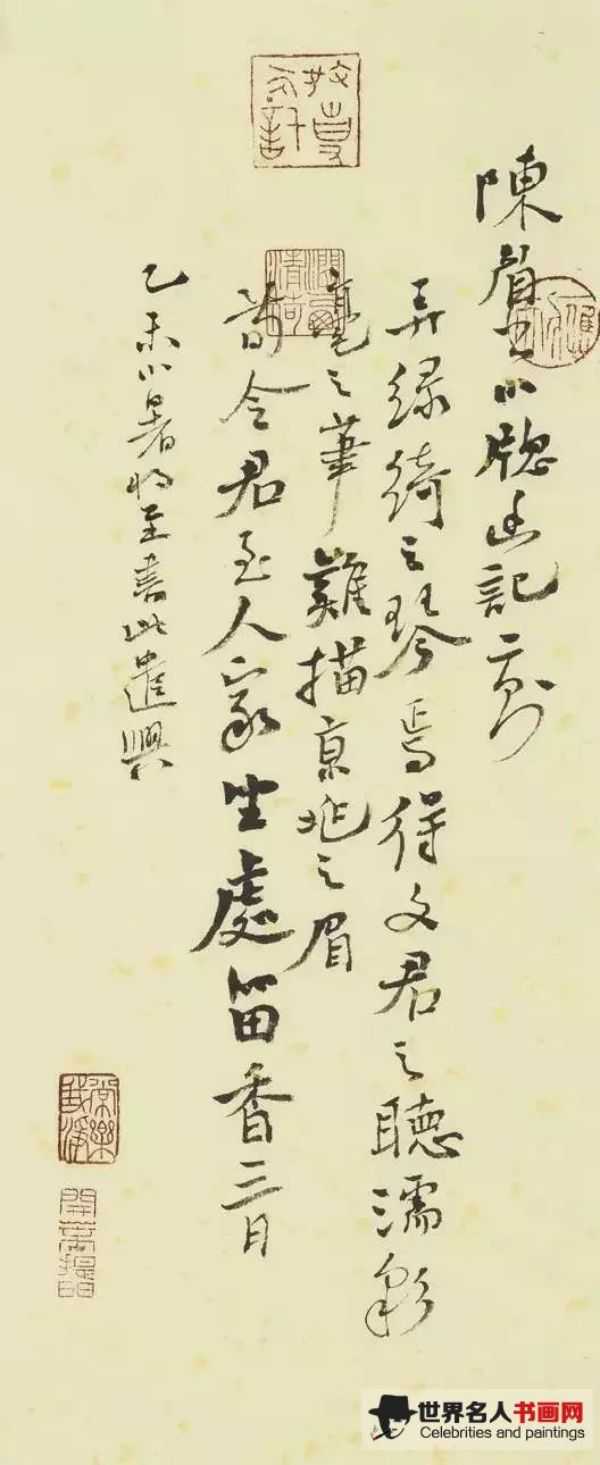 陳眉公小牕幽記二則
弄綠綺之琴焉得文君之聽濡彩
毫之筆難描京兆之眉
荀令君至人家坐處留香三日
乙未小暑將至書此遣興
常樂我淨
世界名人书画网
Celebrities and paintings